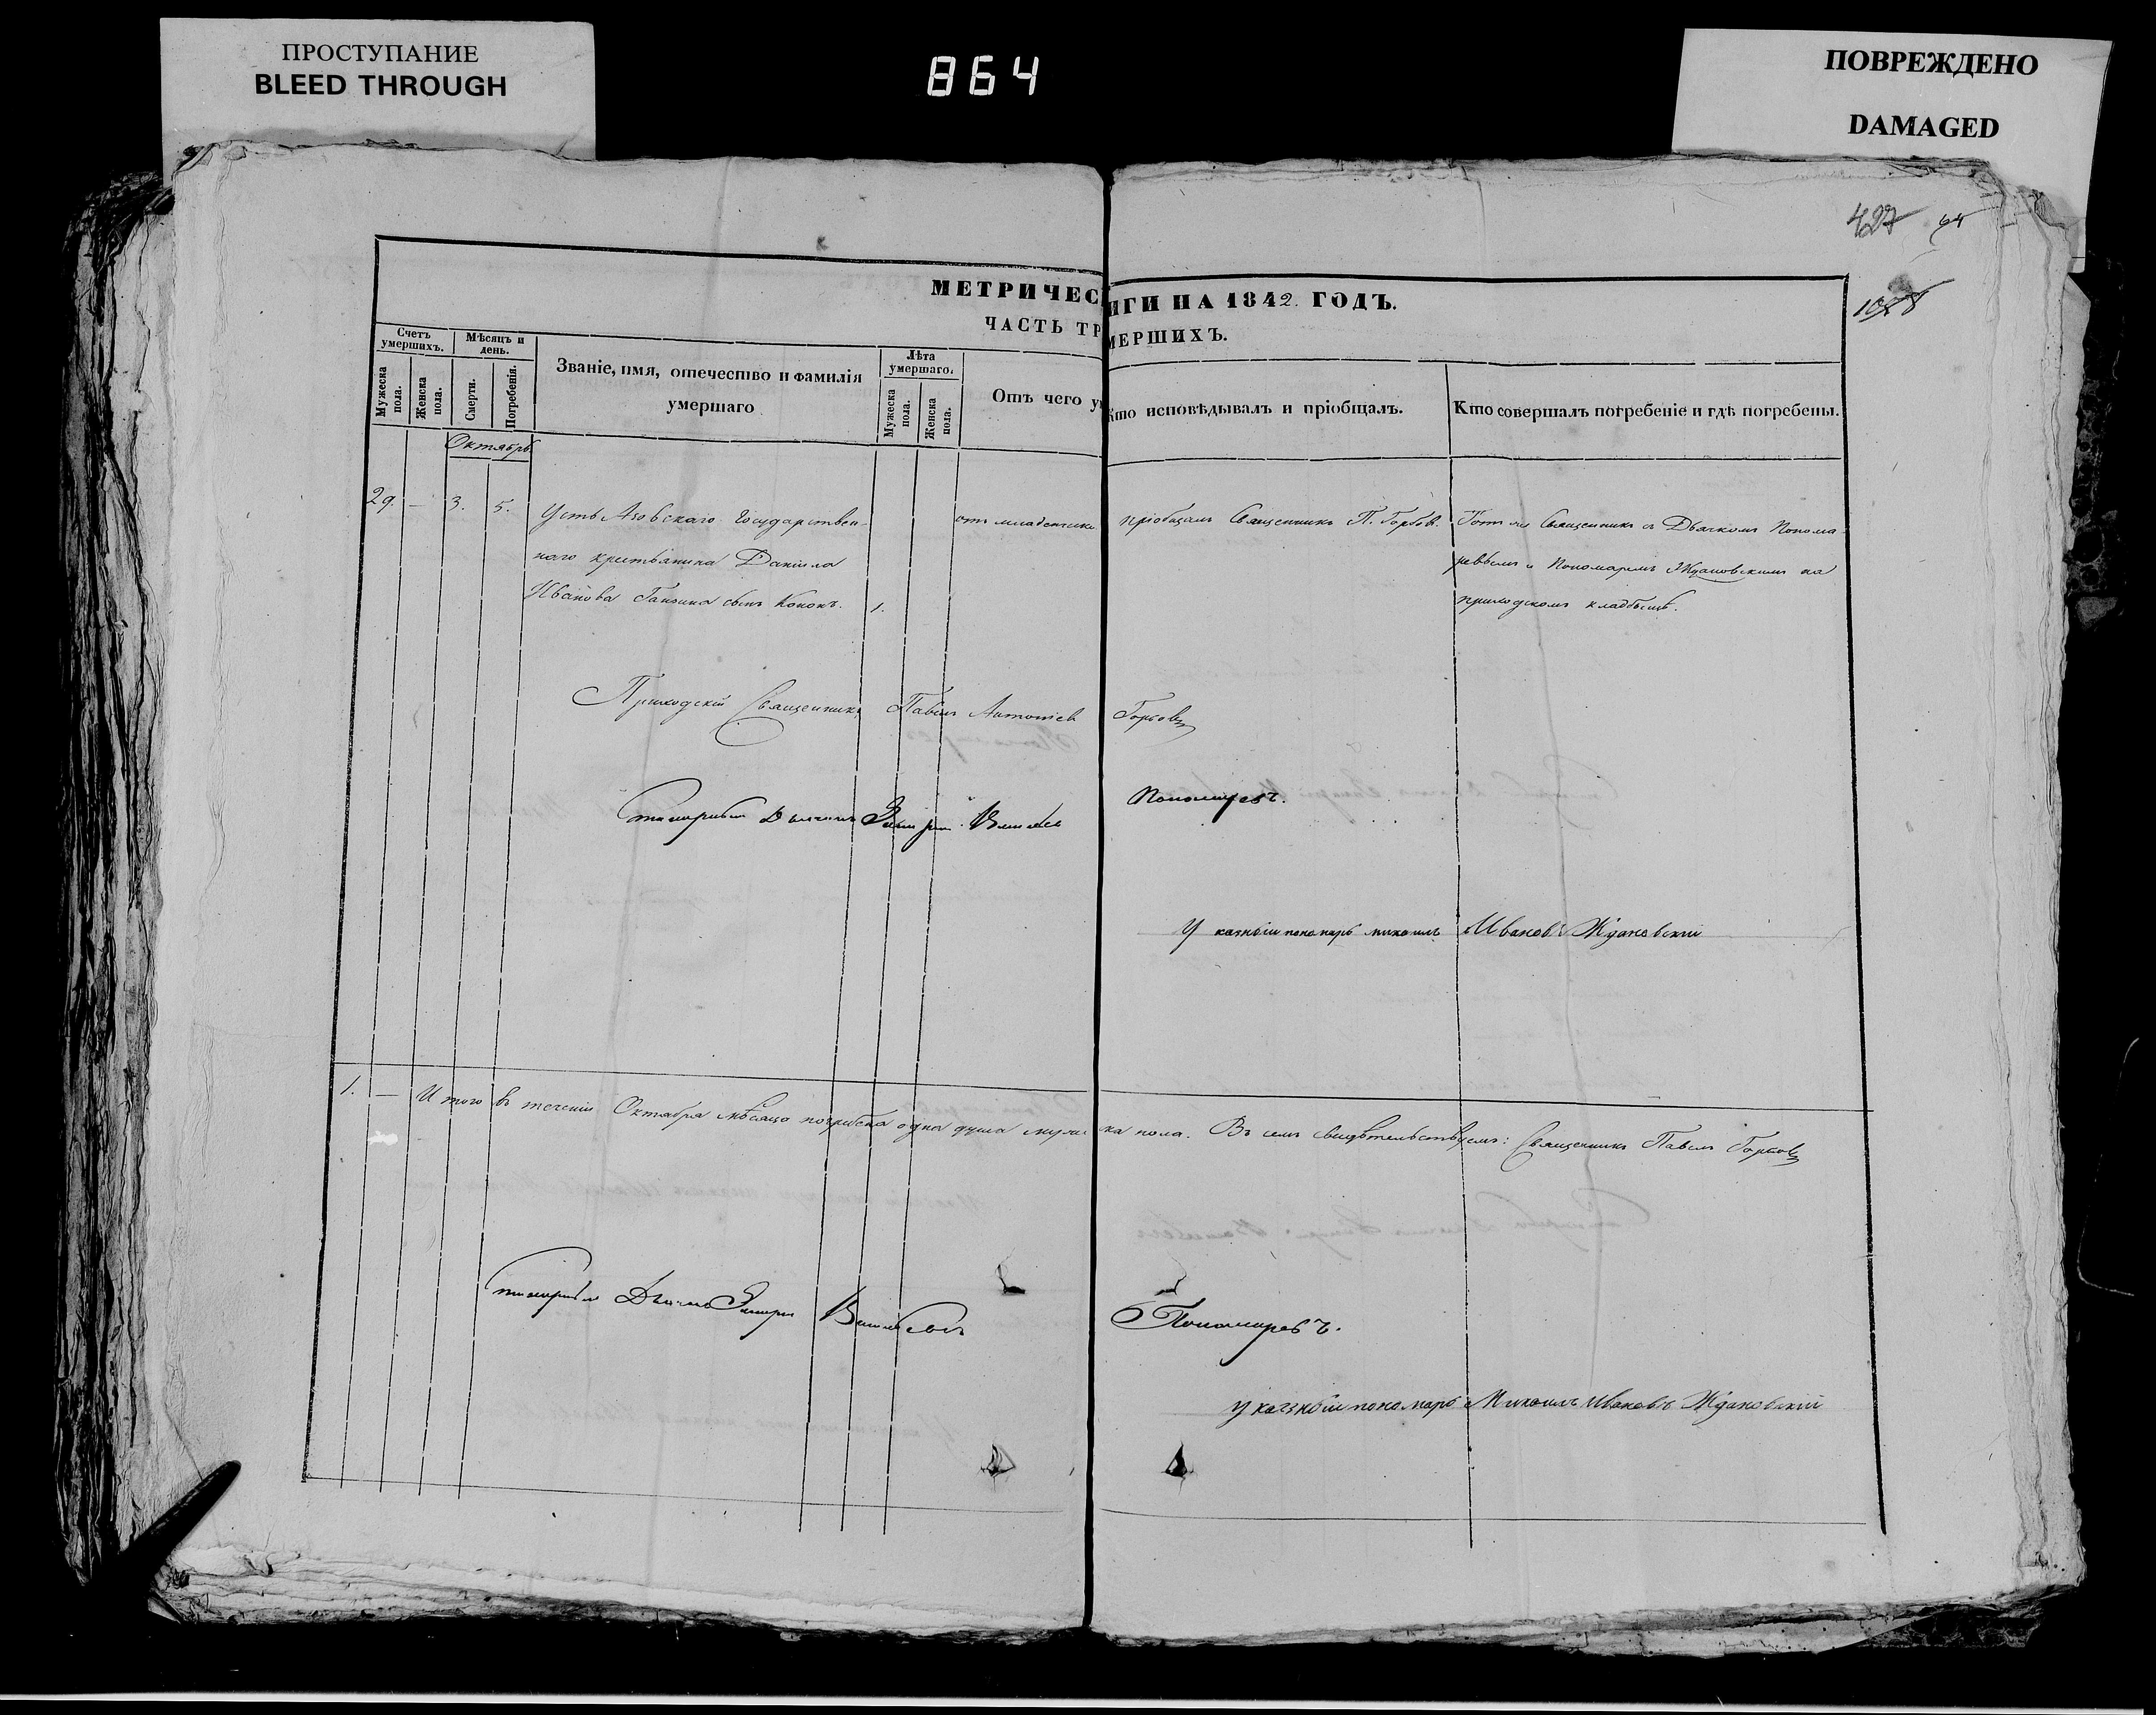 ПРОСТУПАНИЕ
BLEED THROUGH
864
ПОВРЕЖДЕНО
DAMAGED
427 64
1028
МЕТРИЧЕС
НГИ НА 1842. ГОДЪ.
ЧАСТЬ ТР
МЕРШИХЪ.
Счетъ умершихъ.
Мѣсяцъ и день.
Мужеска пола.
Женска пола.
Смерти.
Погребенія.
Званіе, имя, отечество и фамилія умершаго
Лѣта умершаго.
Мужеска пола.
Женска пола.
Отъ чего у
Кто исповѣдывалъ и пріобщалъ.
Кто совершалъ погребеніе и гдѣ погребены.
Октябрь
29. — 3. 5. Усть Азовскаго Государствен-
наго крестьянина Даніила
Иванова сынъ Кононъ. 1.
отъ младенческ.
пріобщалъ Священникъ П. Горбов.
Тотъ же Священникъ съ Дьячкомъ Понома
ревымъ и Пономаремъ Ждановскимъ на
приходскомъ кладбищѣ.
Приходскій Священникъ Павелъ Антоніев Горбовъ
Дьячекъ Пономаревъ.
Указный пономарь михаилъ Ивановъ Ждановскій
1. — Итого въ теченіи Октября мѣсяца погребена одна душа мужеска пола. Въ семъ свидѣтельствуемъ: Священникъ Павелъ Горбовъ
Дьячекъ Васильевъ Пономаревъ.
указный пономарь Михаилъ Ивановъ Ждановскій